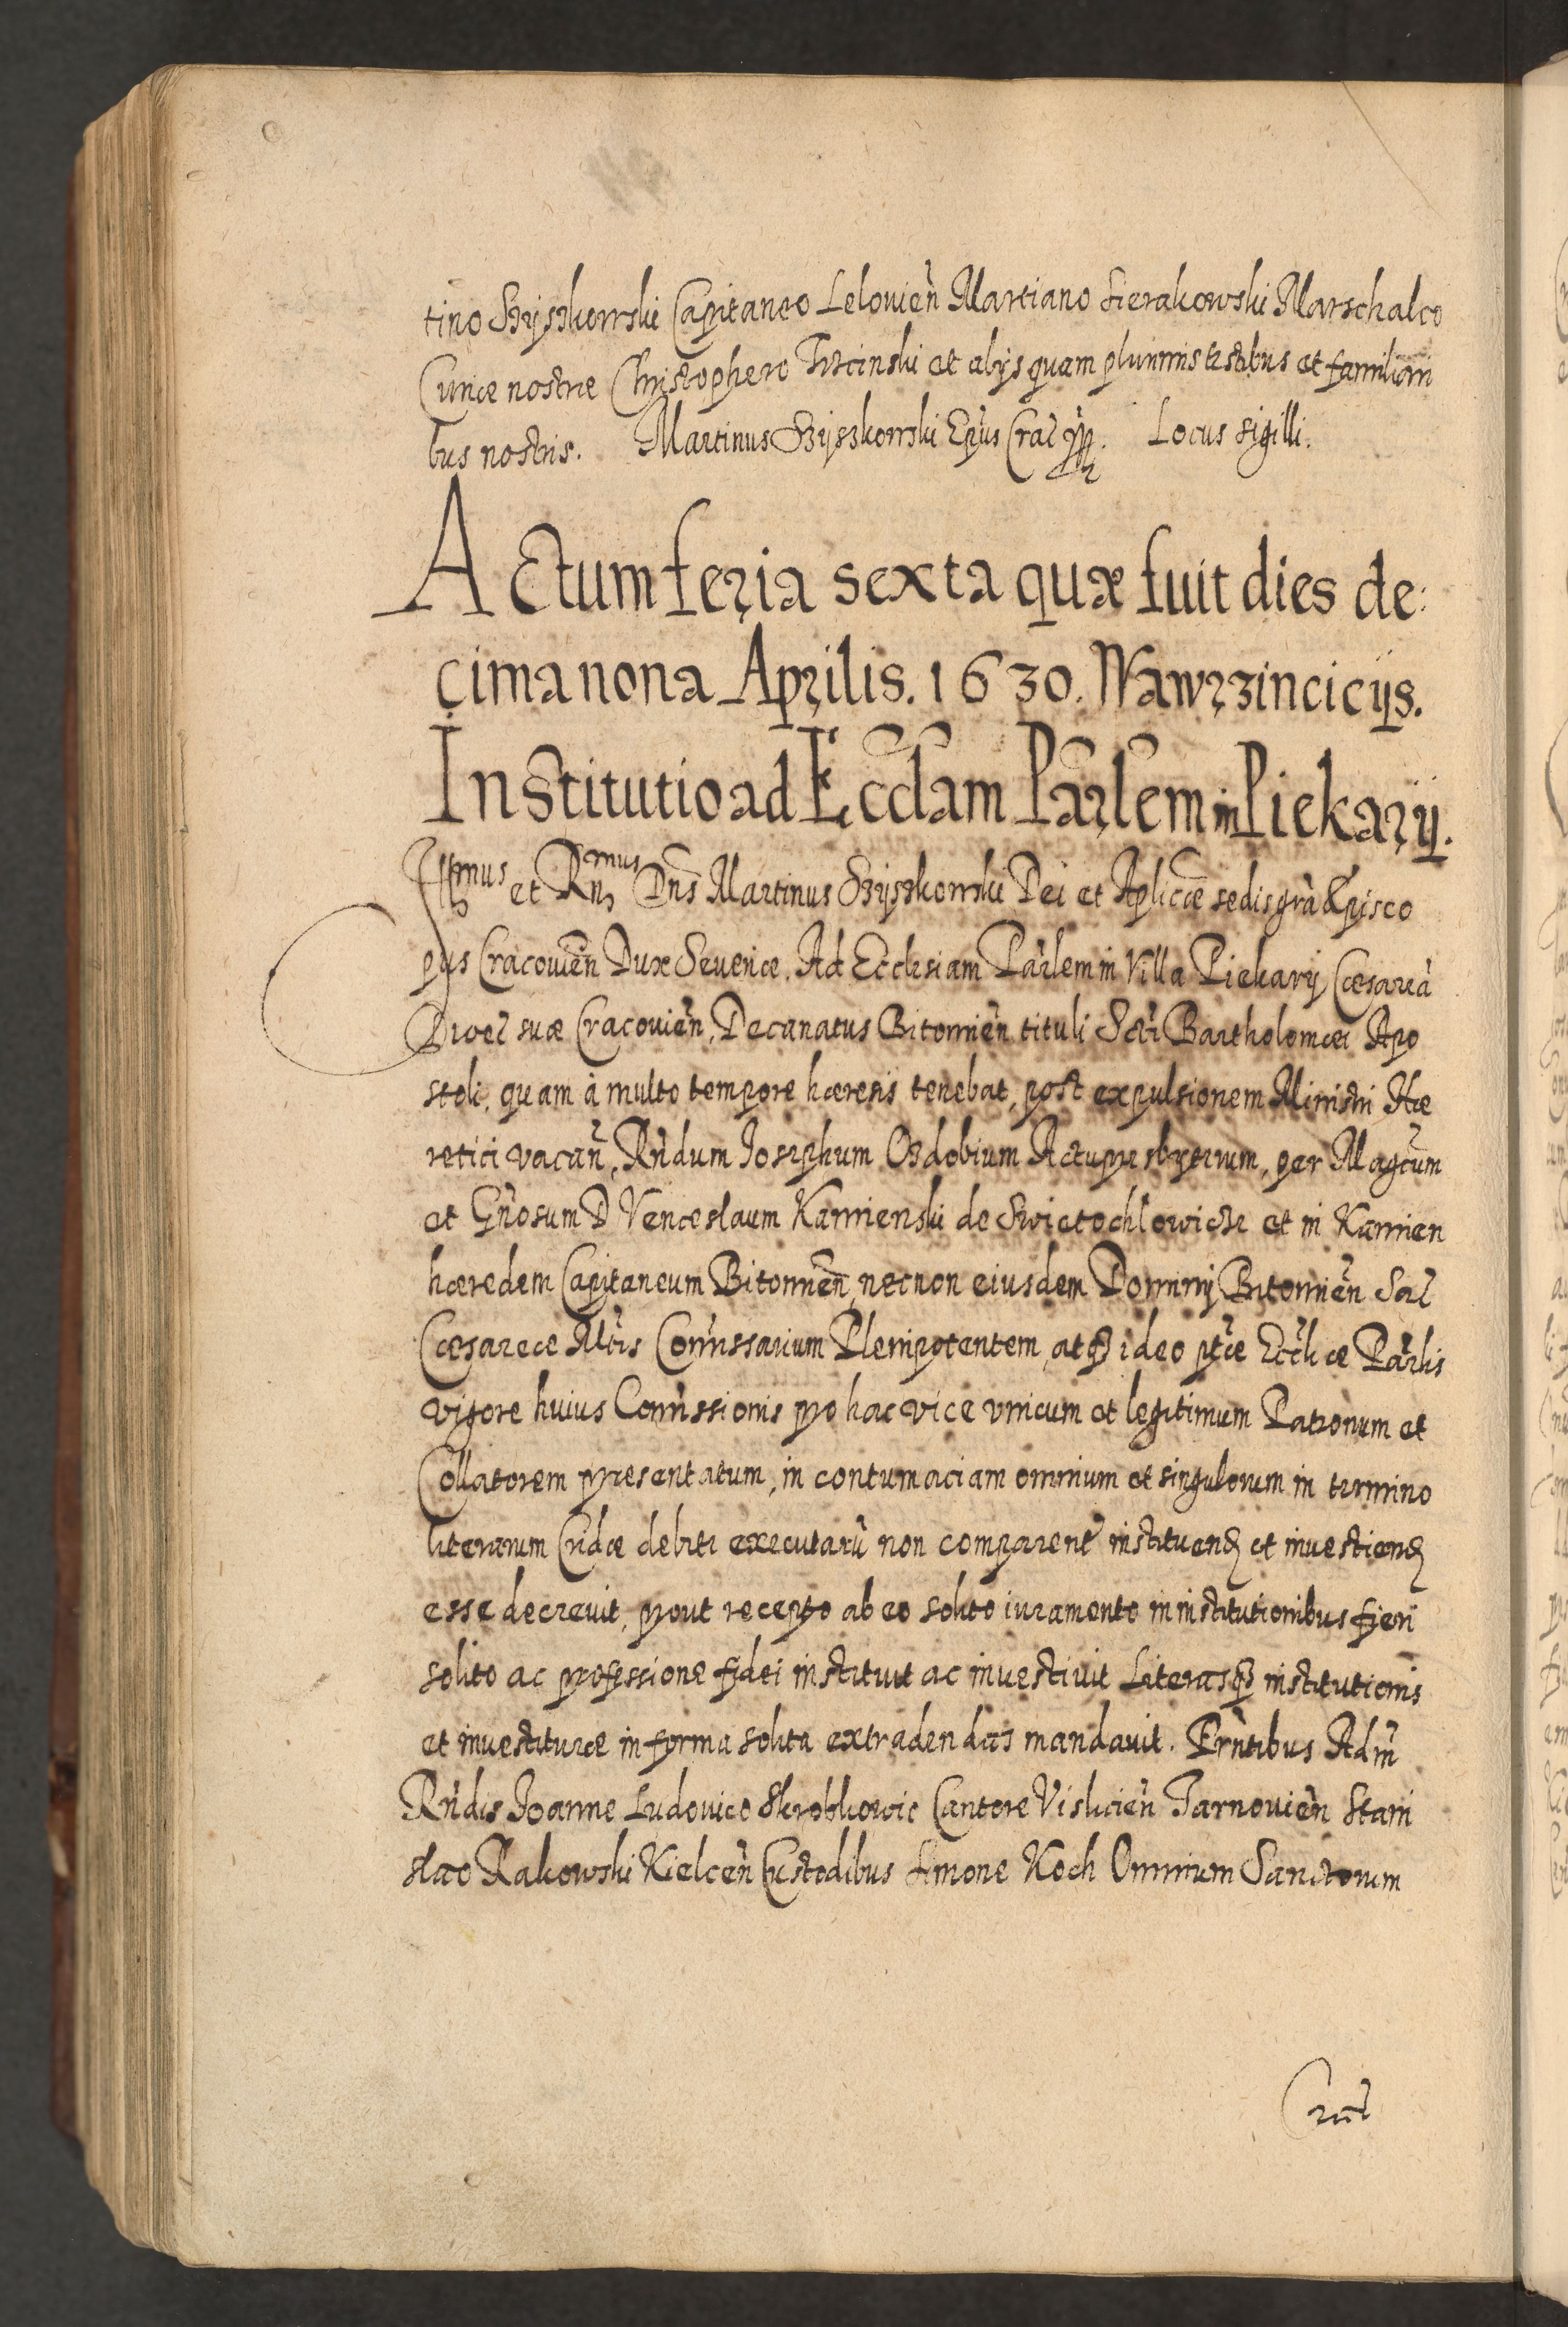 tino Szyszkowski Capitaneo Lelovien̄ Martiano Sierakowski Marschalco
Curiæ nostræ Christophero Trzcinski et alijs quam plurimis testibus et familiari
bus nostris. Martinus Szyszkowski Ep̄us Crac̄ Locus sigilli.
Actum feria sexta quæ fuit dies de:
cima nona Aprilis. 1630. Wawrzincicijs.
Institutio ad Eccl̄am Par̄lem in Piekary.
Ill̄mus et R̄n̄mus Dn̄s Martinus Szyszkowski Dei et Ap̄licæ sedis grā Episco
pus Cracovien̄ Dux Severiæ. Ad Ecclesiam Par̄lem in Villa Piekary Cæsareā
Diœc̄ suæ Cracovien̄, Decanatus Bitomien̄ tituli Sc̄ti Bartholomæi Apo
stoli, quam à multo tempore hæresis tenebat, post expulsionem Ministri Hæ
retici vacan̄, Rn̄dum Iosephum Ozdobium Actu presbyterum, per Maḡcum
et Gn̄osum D Venceslaum Kamienski de Swietochlowicze et in Kamien
hæredem Capitaneum Bitomien̄, necnon eiusdem Dominij Bitomien̄ Sac̄
Cæsareæ Mt̄is Com̄issarium Plenipotentem, atq̄ ideo pt̄æ Eccl̄iæ Par̄lis
vigore huius Com̄issionis pro hac vice vnicum et legitimum Patronum et
Collatorem præsentatum, in contumaciam omnium et singulorum in termino
literarum Cridæ debite executarū non comparen̄ instituend̄ et investiend̄
esse decrevit, prout recepto ab eo solito iuramento in institutionibus fieri
solito ac professione fidei instituit ac investivit Literasq̄ institutionis
et investituræ in forma solita extradendas mandavit. Pr̄ntibus Adm̄
Rn̄dis Joanne Ludovico Skrobkowic Cantore Vislicien̄ Tarnovien̄ Stani
slao Rakowski Kielcen̄ Custodibus Simone Koch Omnium Sanctorum
Crac̄